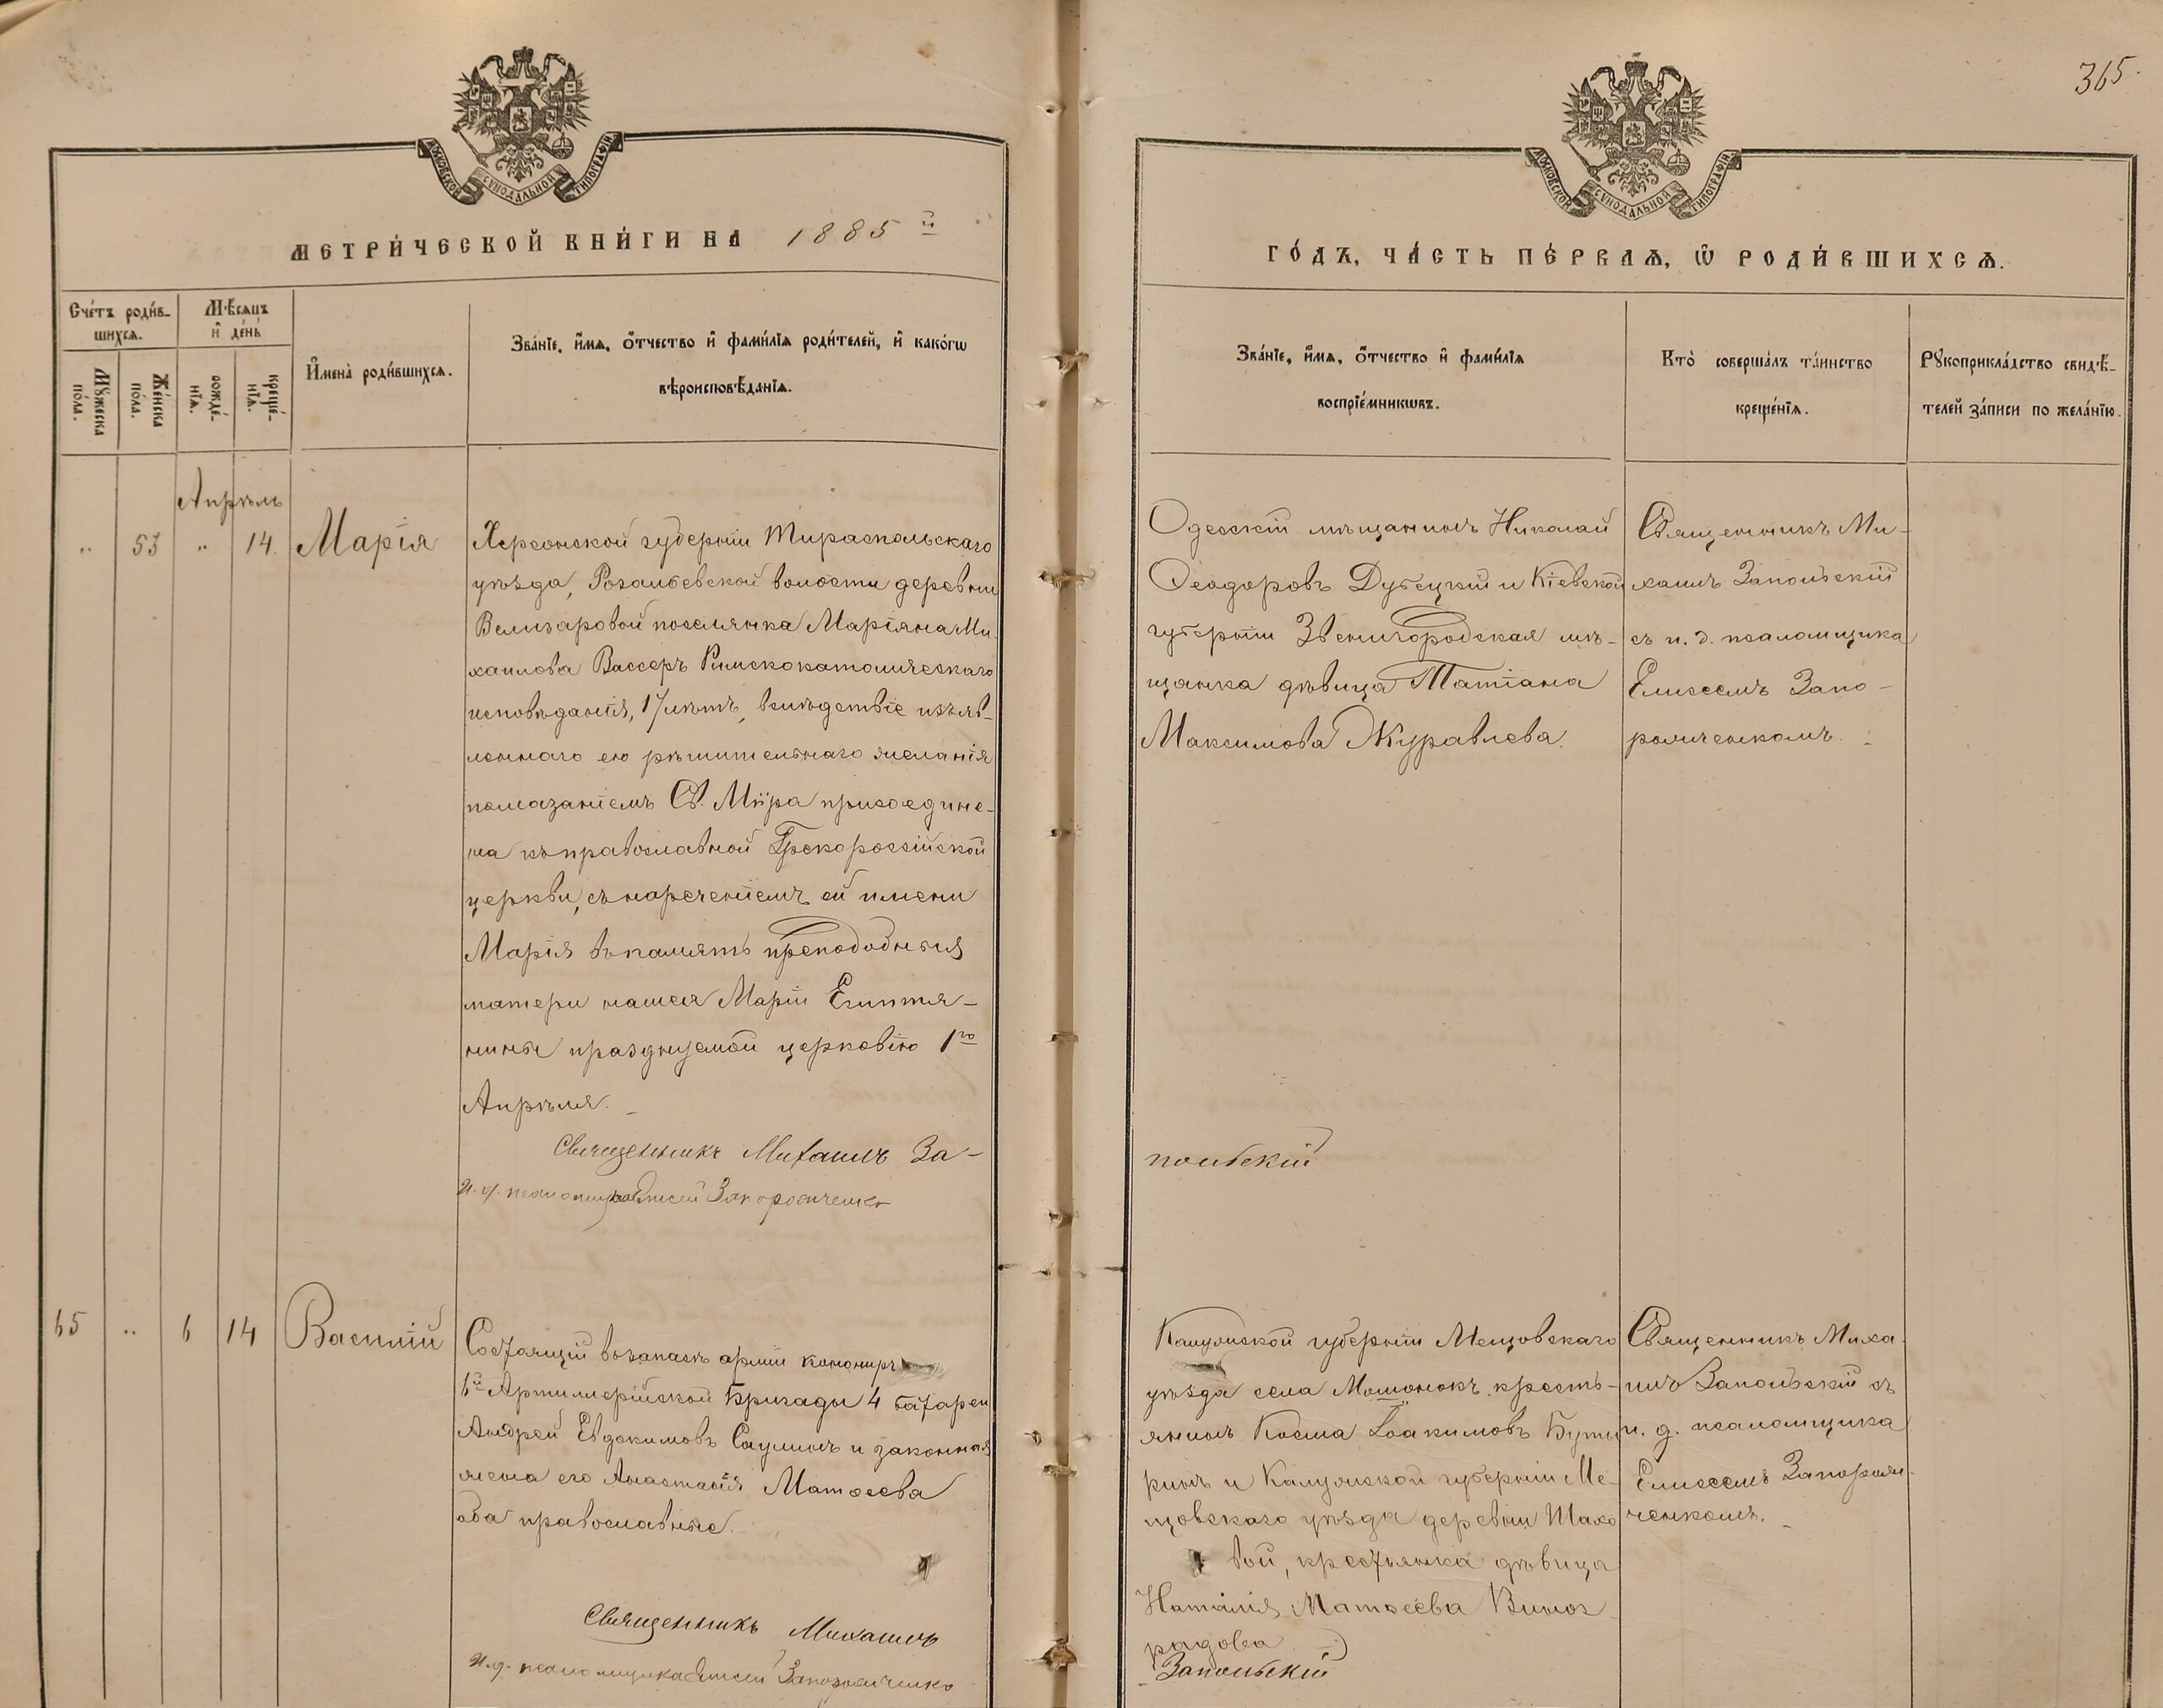 365.
МОСКОВСКОЙ СѴНОДАЛЬНОЙ ТИПОГРАФІИ
МОСКОВСКОЙ СѴНОДАЛЬНОЙ ТИПОГРАФІИ
МЕТРИ́ЧЕСКОЙ КНИ́ГИ НА 1885 й
ГО́ДЪ, ЧА́СТЬ ПЕ́РВАѦ, Ѡ҆ РОДИ́ВШИХСѦ.
Счéтъ роди́в-
шихсѧ.
Мꙋ́жеска
по́ла.
Же́нска
по́ла.
Мѣ́сѧцъ
и҆ де́нь
рожде́-
нїѧ.
креще́-
нїѧ.
И҆мена̀ роди́вшихсѧ.
Зва́нїе, и҆́мѧ, ѻ҆́тчество и҆ фами́лїѧ роди́телей, и҆ како́гѡ
вѣроисповѣ́данїѧ.
Зва́нїе, и҆́мѧ, ѻ҆́тчество и҆ фами́лїѧ
воспрїе́мникѡвъ.
Кто̀ соверша́лъ та́инство
креще́нїѧ.
Рꙋкоприкла́дство свидѣ́-
телей за́писи по жела́нїю.
Апрѣль
„ 53 „ 14. Марія
Херсонской губерніи Тираспольскаго
уѣзда, Розальевской волости деревни
Велизаровой поселянка Маріяна Ми-
хаилова Вассеръ Римскокатолическаго
исповѣданія, 17 лѣтъ, вслѣдствіе изъяв-
леннаго ею рѣшительнаго желанія
помазаніемъ Св. Мѵра присоедине-
на къ православной Грекороссійской
церкви, съ нареченіемъ ей имени
Марія въ память преподобныя
матери нашея Маріи Египтя-
нины празднуемой церковію 1го
Апрѣля.
Священникъ Михаилъ За-
И. д. псаломщика Елисей Запорожченко
Одесскій мѣщанинъ Николай
Ѳеодоровъ Дубецкій и Кіевской
губерніи Звенигородская мѣ-
щанка дѣвица Татіана
Максимова Журавлева.
польскій
Священникъ Ми-
хаилъ Запольскій
съ и. д. псаломщика
Елисеемъ Запо-
рожченкомъ.
65 „ 6 14 Василій
Состоящій въ запасѣ арміи канониръ
6й Артиллерійской Бригады 4 батареи
Андрей Евдокимовъ Саулинъ и законная
жена его Анастасія Матѳеева
оба православные.
Священникъ Михаилъ
И. д. псаломщика Елисей Запорожченко
Калужской губерніи Мещовскаго
уѣзда села Мошонокъ кресть-
янинъ Косма Іоакимовъ Буты
ринъ и Калужской губерніи Ме-
щовскаго уѣзда деревни Шахо
вой, крестьянка дѣвица
Наталія Матѳеева Виног
радова
Запольскій
Священникъ Миха-
илъ Запольскій съ
и. д. псаломщика
Елисеемъ Запорож-
ченкомъ.